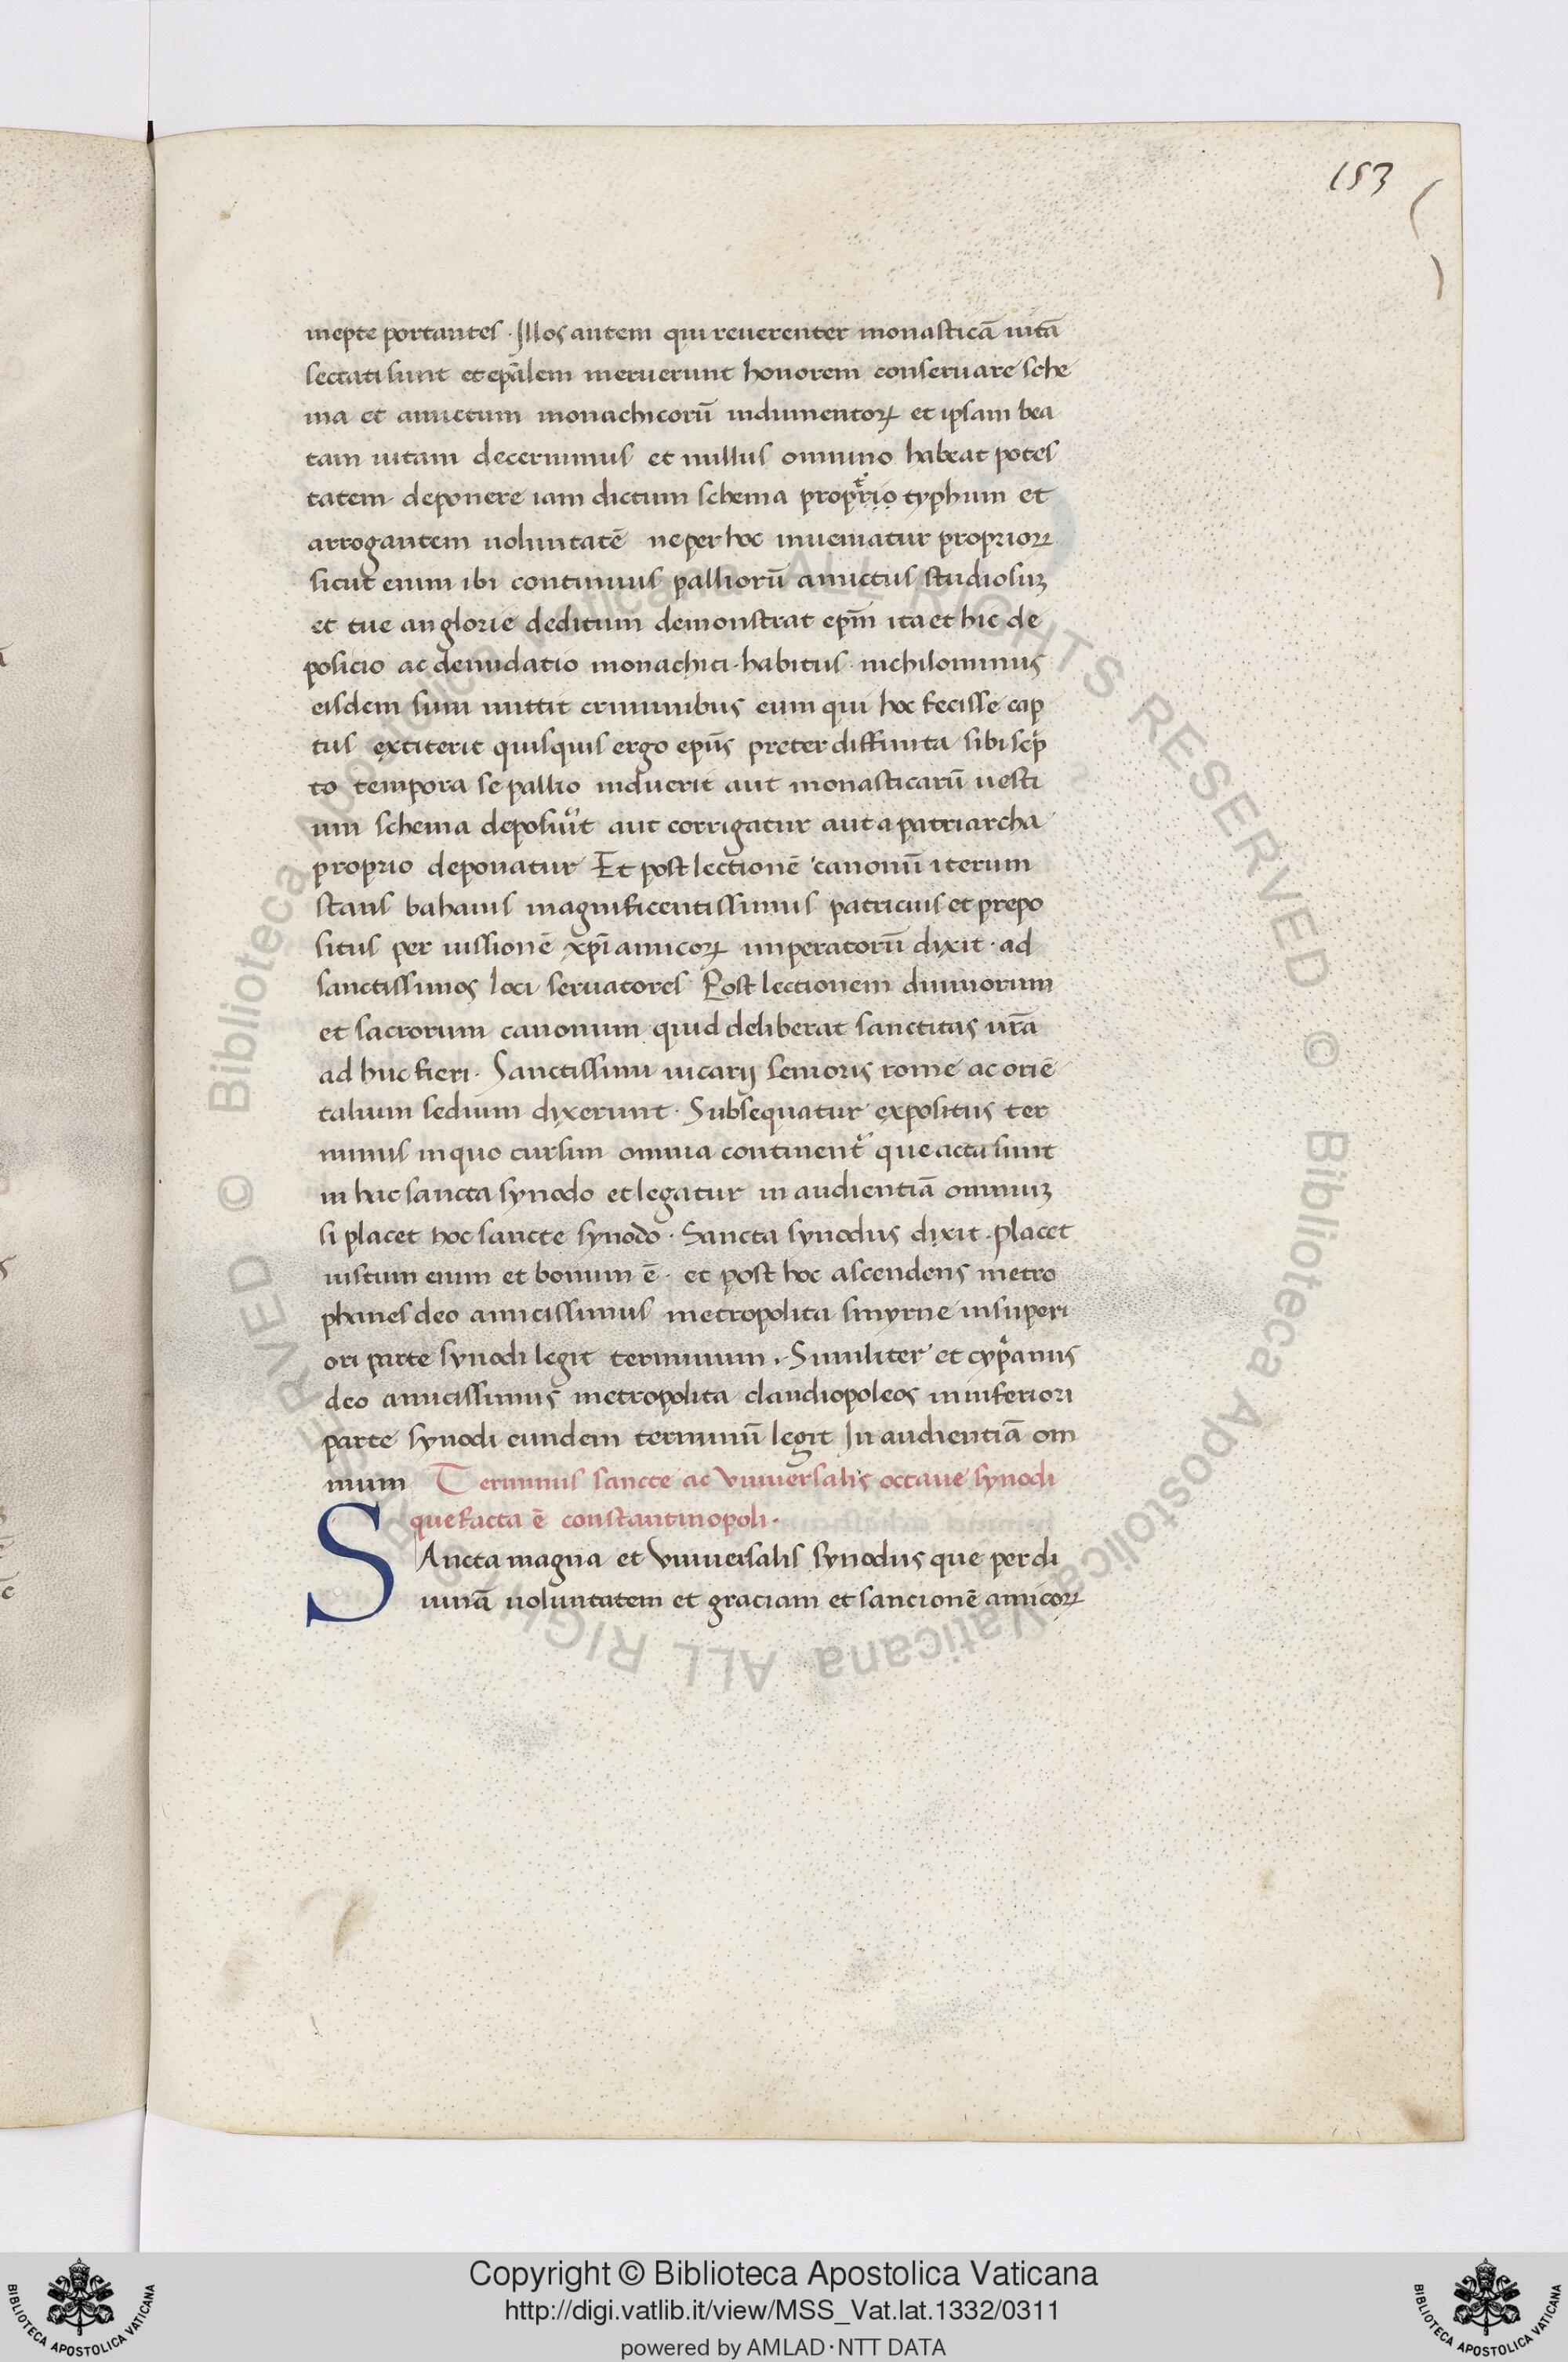 153
inepte portantes · Illos autem qui reuerenter monasticā uitā
sectati sunt et ep̄alem meruerunt honorem conseruare sche
ma et amictum monachicorū indumentoꝝ et ipsam bea
tam uitam decernimus et nullus omnino habeat potes
tatem deponere iam dictum schema typhum et
arrogantem uoluntatē ne per hoc inueniatur proprioꝝ
sicut enim ibi continuus palliorū amictus studiosuꝫ
et tue an glorie deditum demonstrat ep̄m ita et hic de
posicio ac denudatio monachici · habitus nichilominus
eisdem sum mittit criminibus eum qui hoc fecisse cap
tus extiterit quisquis ergo ep̄us preter diffinita sibi
to tempora se pallio induerit aut monasticarū uesti
um schema aut corrigatur aut a patriarcha
proprio deponatur Et post lectionē canonū iterum
stans bahanis magnificentissimus patricius et prepo
situs per iussionē xp̄i amicoꝝ imperatorū dixit · ad
sanctissimos loci seruatores Post lectionem diuinorum
et sacrorum canonum quid deliberat sanctitas ur̄a
ad huc fieri · Sanctissimi uicarij senioris rome ac oriē
talium sedium dixerunt · Subsequatur expositus ter
minus in quo cursim omnia continent᷑ que acta sunt
in hac sancta synodo et legatur in audientiā omniuꝫ
si placet hoc sancte synodo · Sancta synodus dixit · Placet
iustum enim et bonum ē · et post hoc ascendens metro
phanes deo amicissimus metropolita smyrne in superi
ori parte synodi legit terminum · Similiter et cyp̓anus
deo amicissimus metropolita claudiopoleos in inferiori
parte synodi eundem terminū legit In audientiā om
nium Terminus sancte ac vniuersalis octaue synodi
que facta ē constantinopoli ·
SAncta magna et vniuersalis synodus que per di
uinā uoluntatem et graciam et sancionē amicoꝝ
Copyright © Biblioteca Apostolica Vaticana
http://digi.vatlib.it/view/MSS_Vat.lat.1332/0311
powered by AMLAD·NTT DATA
BIBLIOTECA APOSTOLICA VATICANA
BIBLIOTECA APOSTOLICA VATICANA
© Biblioteca Apostolica Vaticana ALL RIGHTS RESERVED © Biblioteca Apostolica Vaticana ALL RIGHTS RESERVED